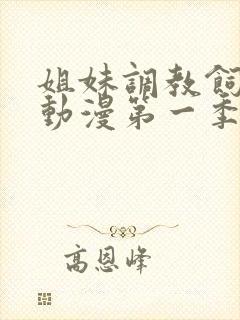 姐妹調教飼
動漫第一季
高恩峰